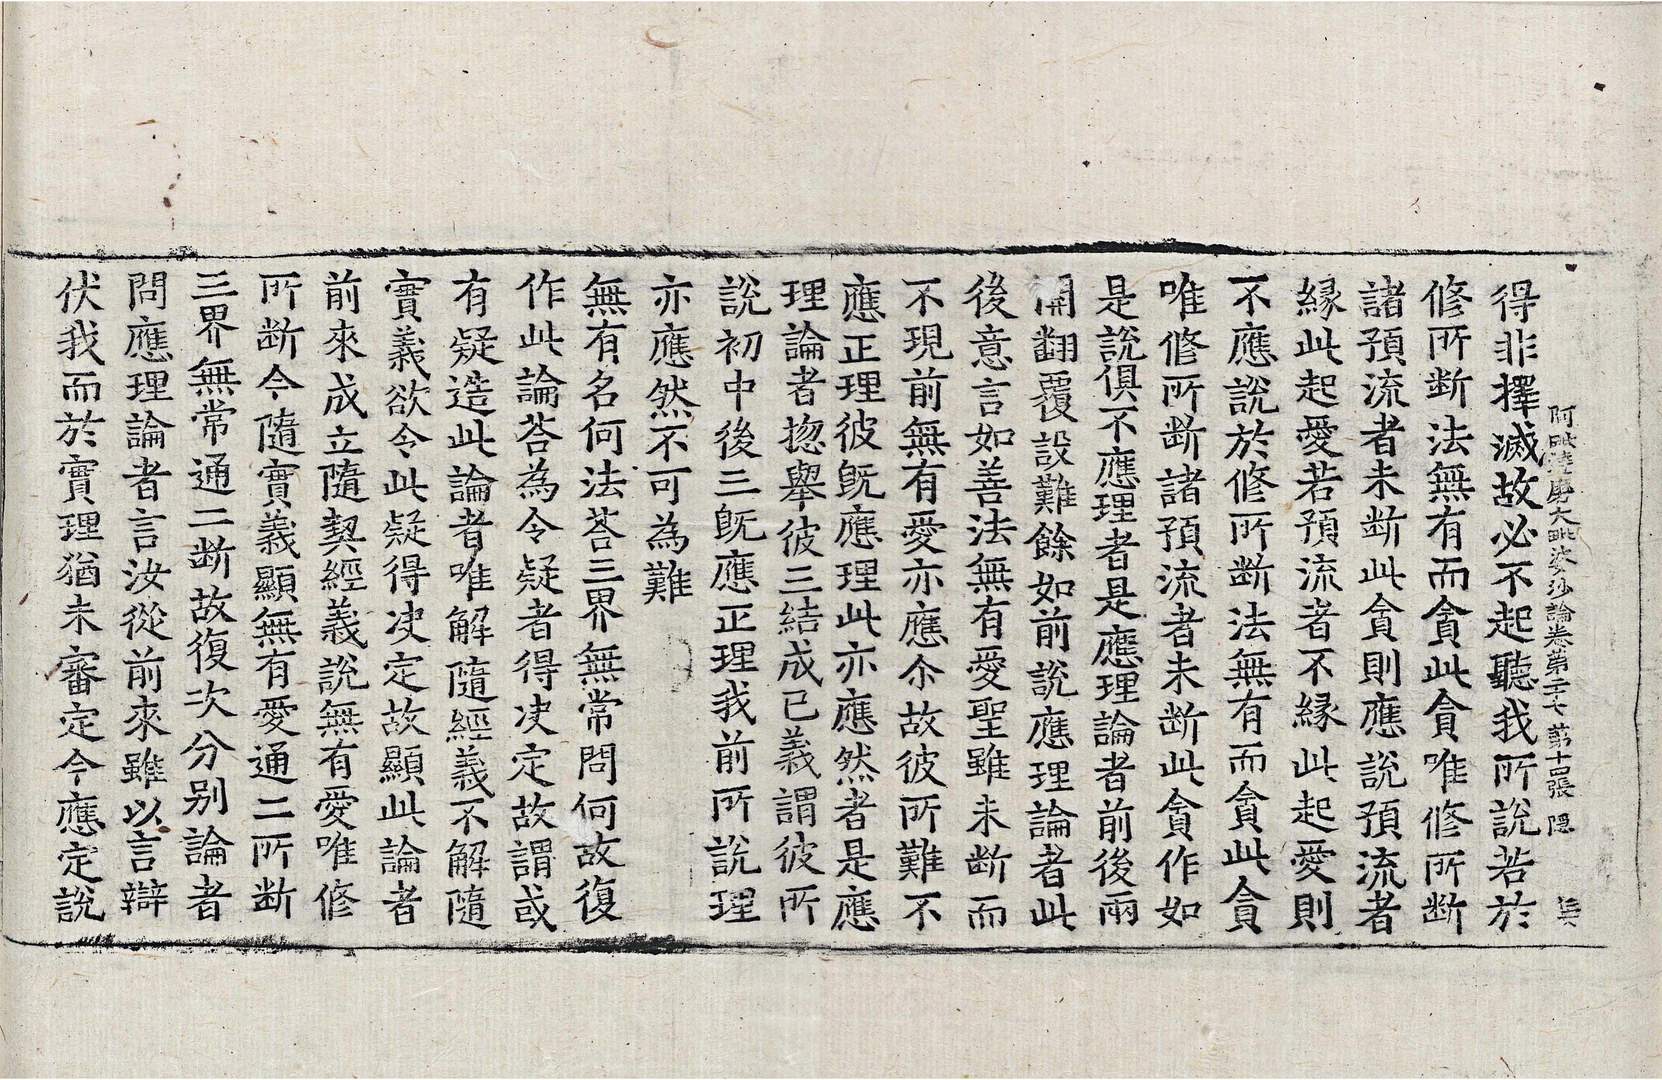 阿毗達磨大毗婆沙論卷第二十七 第十四張 隱
得非擇滅故必不起聽我所說若於
修所断法無有而貪此貪唯修所断
諸預流者未断此貪則應說預流者
緣此起愛若預流者不緣此起愛則
不應說於修所断法無有而貪此貪
唯修所断諸預流者未断此貪作如
是說俱不應理者是應理論者前後兩
開翻覆設難餘如前說應理論者此
後意言如善法無有愛聖雖未断而
不現前無有愛亦應尒故彼所難不
應正理彼既應理此亦應然者是應
理論者揔舉彼三結成已義謂彼所
說初中後三既應正理我前所說理
亦應然不可為難
無有名何法荅三界無常問何故復
作此論荅為令疑者得决定故謂或
有疑造此論者唯解隨經義不解隨
實義欲令此疑得决定故顯此論者
前來成立隨契經義說無有愛唯修
所断今隨實義顯無有愛通二所断
三界無常通二断故復次分别論者
問應理論者言汝從前來雖以言辯
伏我而於實理猶未審定今應定說